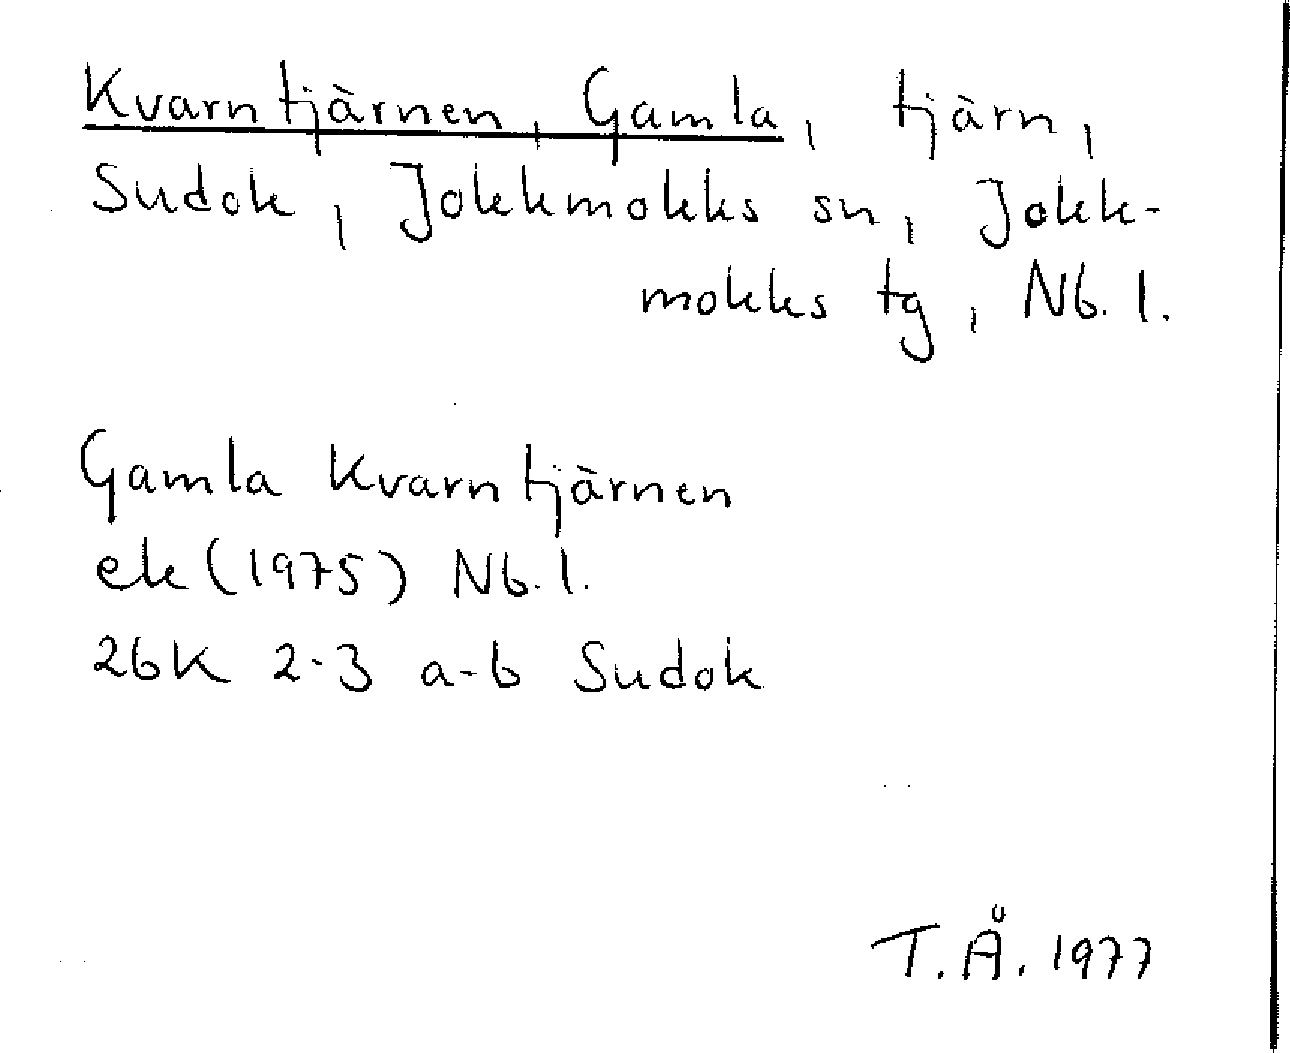 Kvarntjärnen, Gamla, tjärn,
Sudok, Jokkmokks sn, Jokk-
mokks tg, Nb. l.
Gamla Kvarntjärnen
ek (1975) Nb. l.
26K 2-3 a-b Sudok
T. Å. 1977